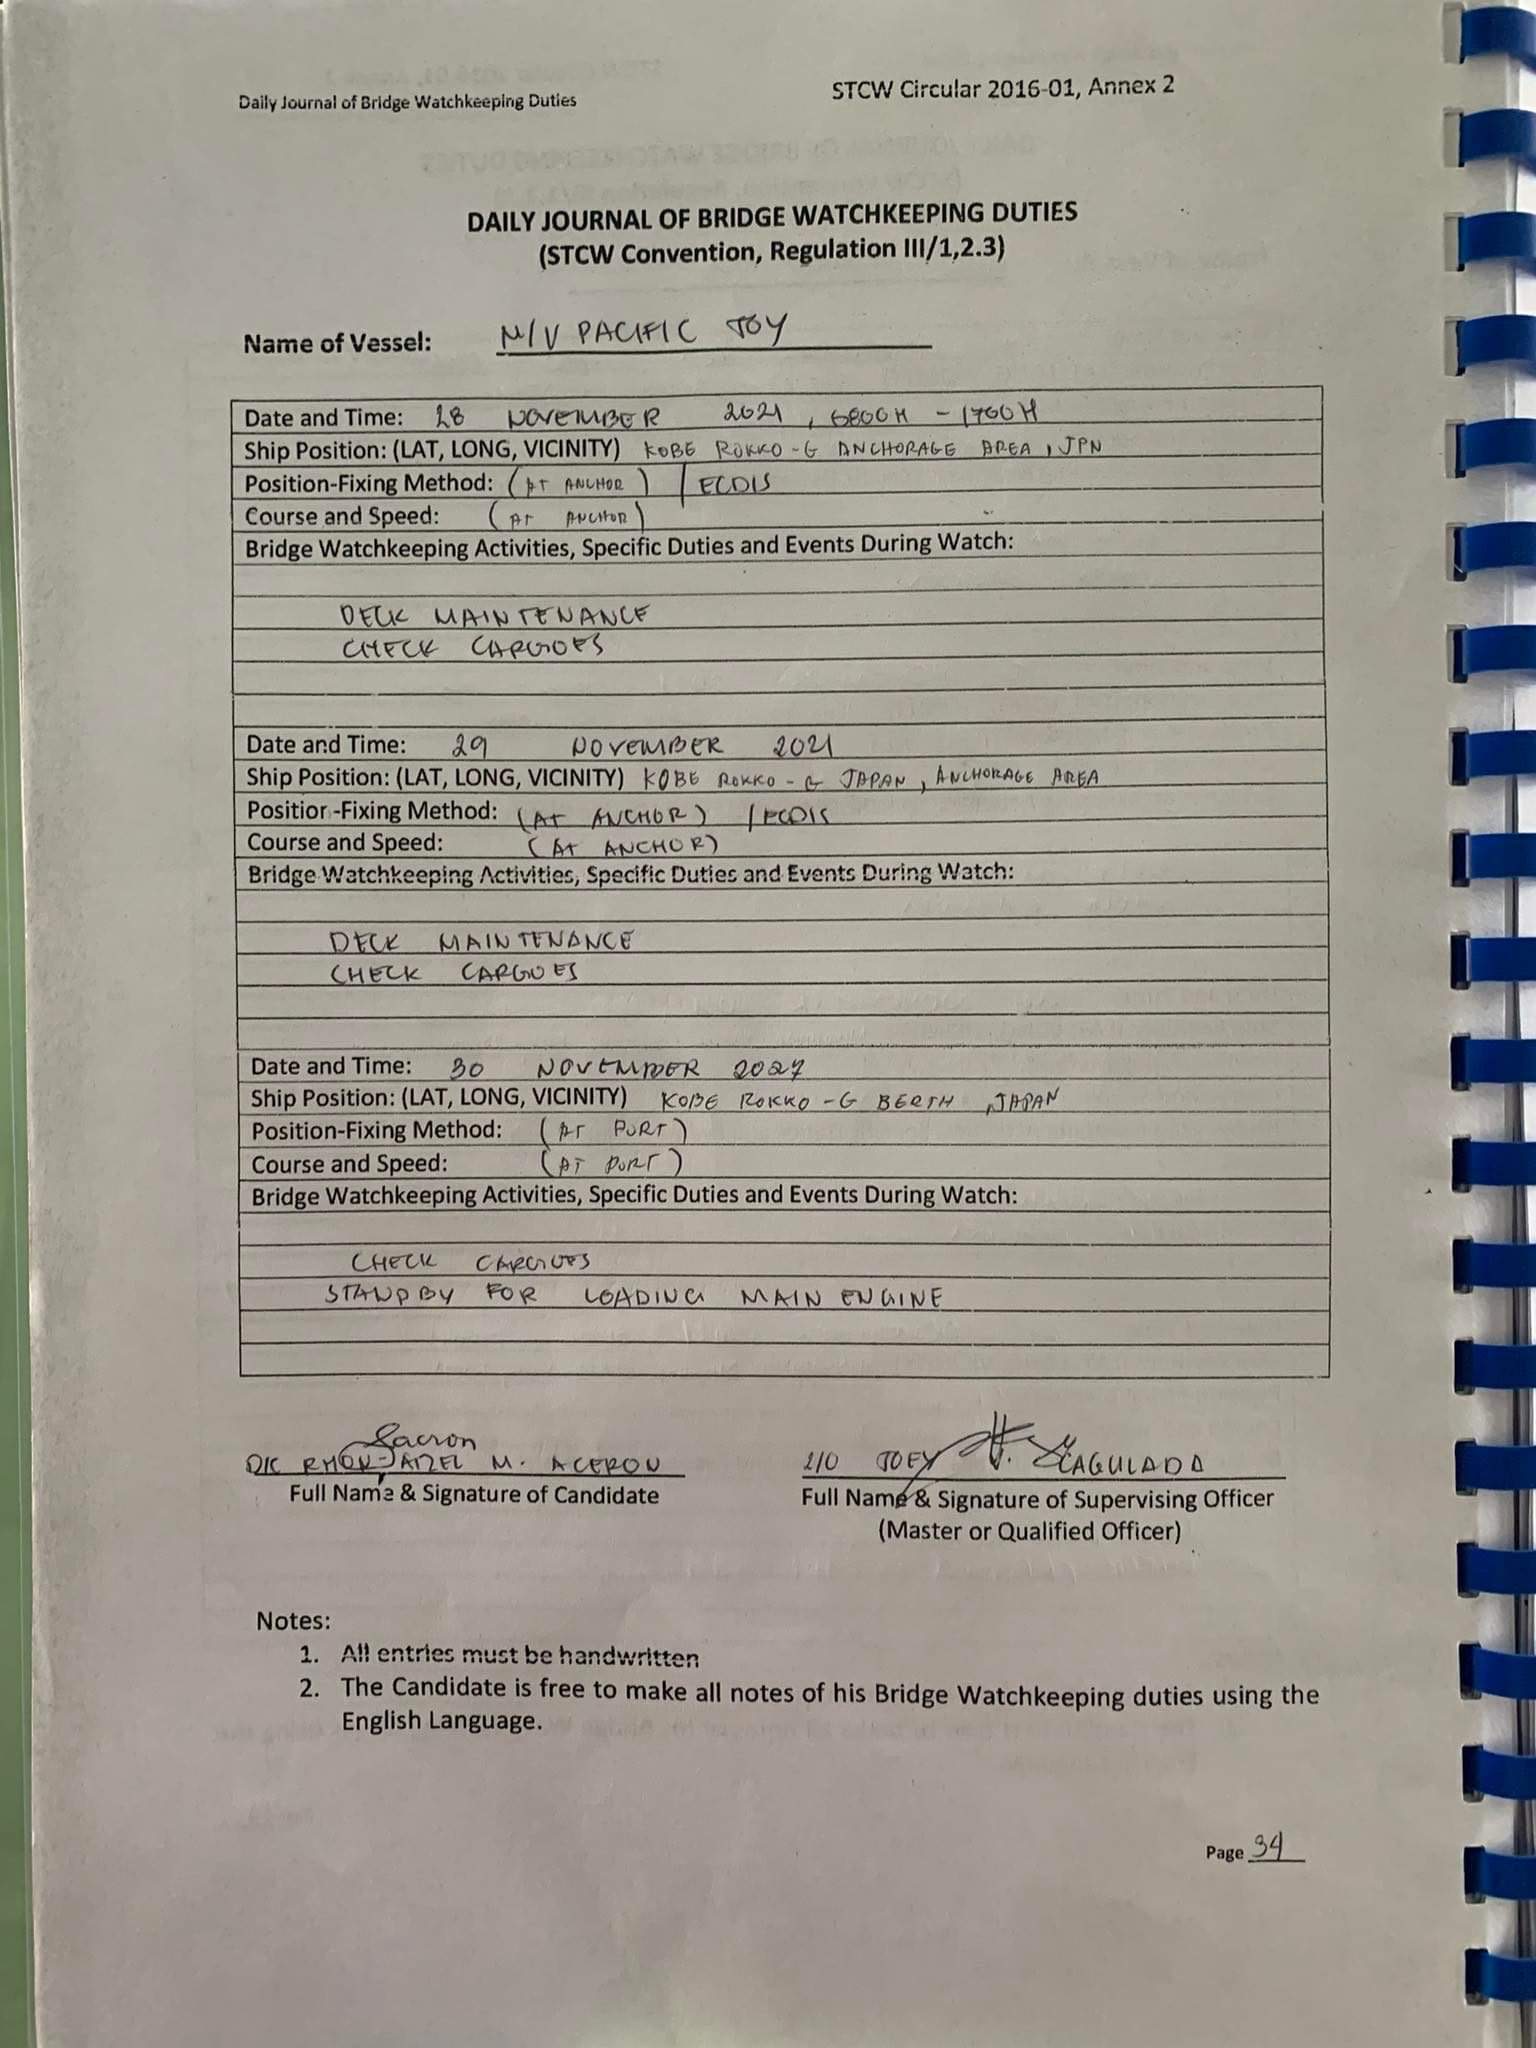 Daily Journal of Bridge Watchkeeping Duties
STCW Circular 2016-01, Annex 2
DAILY JOURNAL OF BRIDGE WATCHKEEPING DUTIES
(STCW Convention, Regulation III/1,2.3)
Name of Vessel: M/V PACIFIC JOY
Date and Time: 28 NOVEMBER 2021, 0800H - 1700H
Ship Position: (LAT, LONG, VICINITY) KOBE ROKKO - G ANCHORAGE AREA, JPN
Position-Fixing Method: (AT ANCHOR) / ECDIS
Course and Speed: (AT ANCHOR)
Bridge Watchkeeping Activities, Specific Duties and Events During Watch:
DECK MAINTENANCE
CHECK CARGOES
Date and Time: 29 NOVEMBER 2021
Ship Position: (LAT, LONG, VICINITY) KOBE ROKKO - G JAPAN, ANCHORAGE AREA
Position-Fixing Method: (AT ANCHOR) / ECDIS
Course and Speed: (AT ANCHOR)
Bridge Watchkeeping Activities, Specific Duties and Events During Watch:
DECK MAINTENANCE
CHECK CARGOES
Date and Time: 30 NOVEMBER
Ship Position: (LAT, LONG, VICINITY) KOBE ROKKO - G BERTH, JAPAN
Position-Fixing Method: (AT PORT)
Course and Speed: (AT PORT)
Bridge Watchkeeping Activities, Specific Duties and Events During Watch:
CHECK CARGOES
STANDBY FOR LOADING MAIN ENGINE
M. ACERON
2/O JOEY CAGULADA
Full Name & Signature of Candidate
Full Name & Signature of Supervising Officer
(Master or Qualified Officer)
Notes:
1. All entries must be handwritten
2. The Candidate is free to make all notes of his Bridge Watchkeeping duties using the
English Language.
Page 34